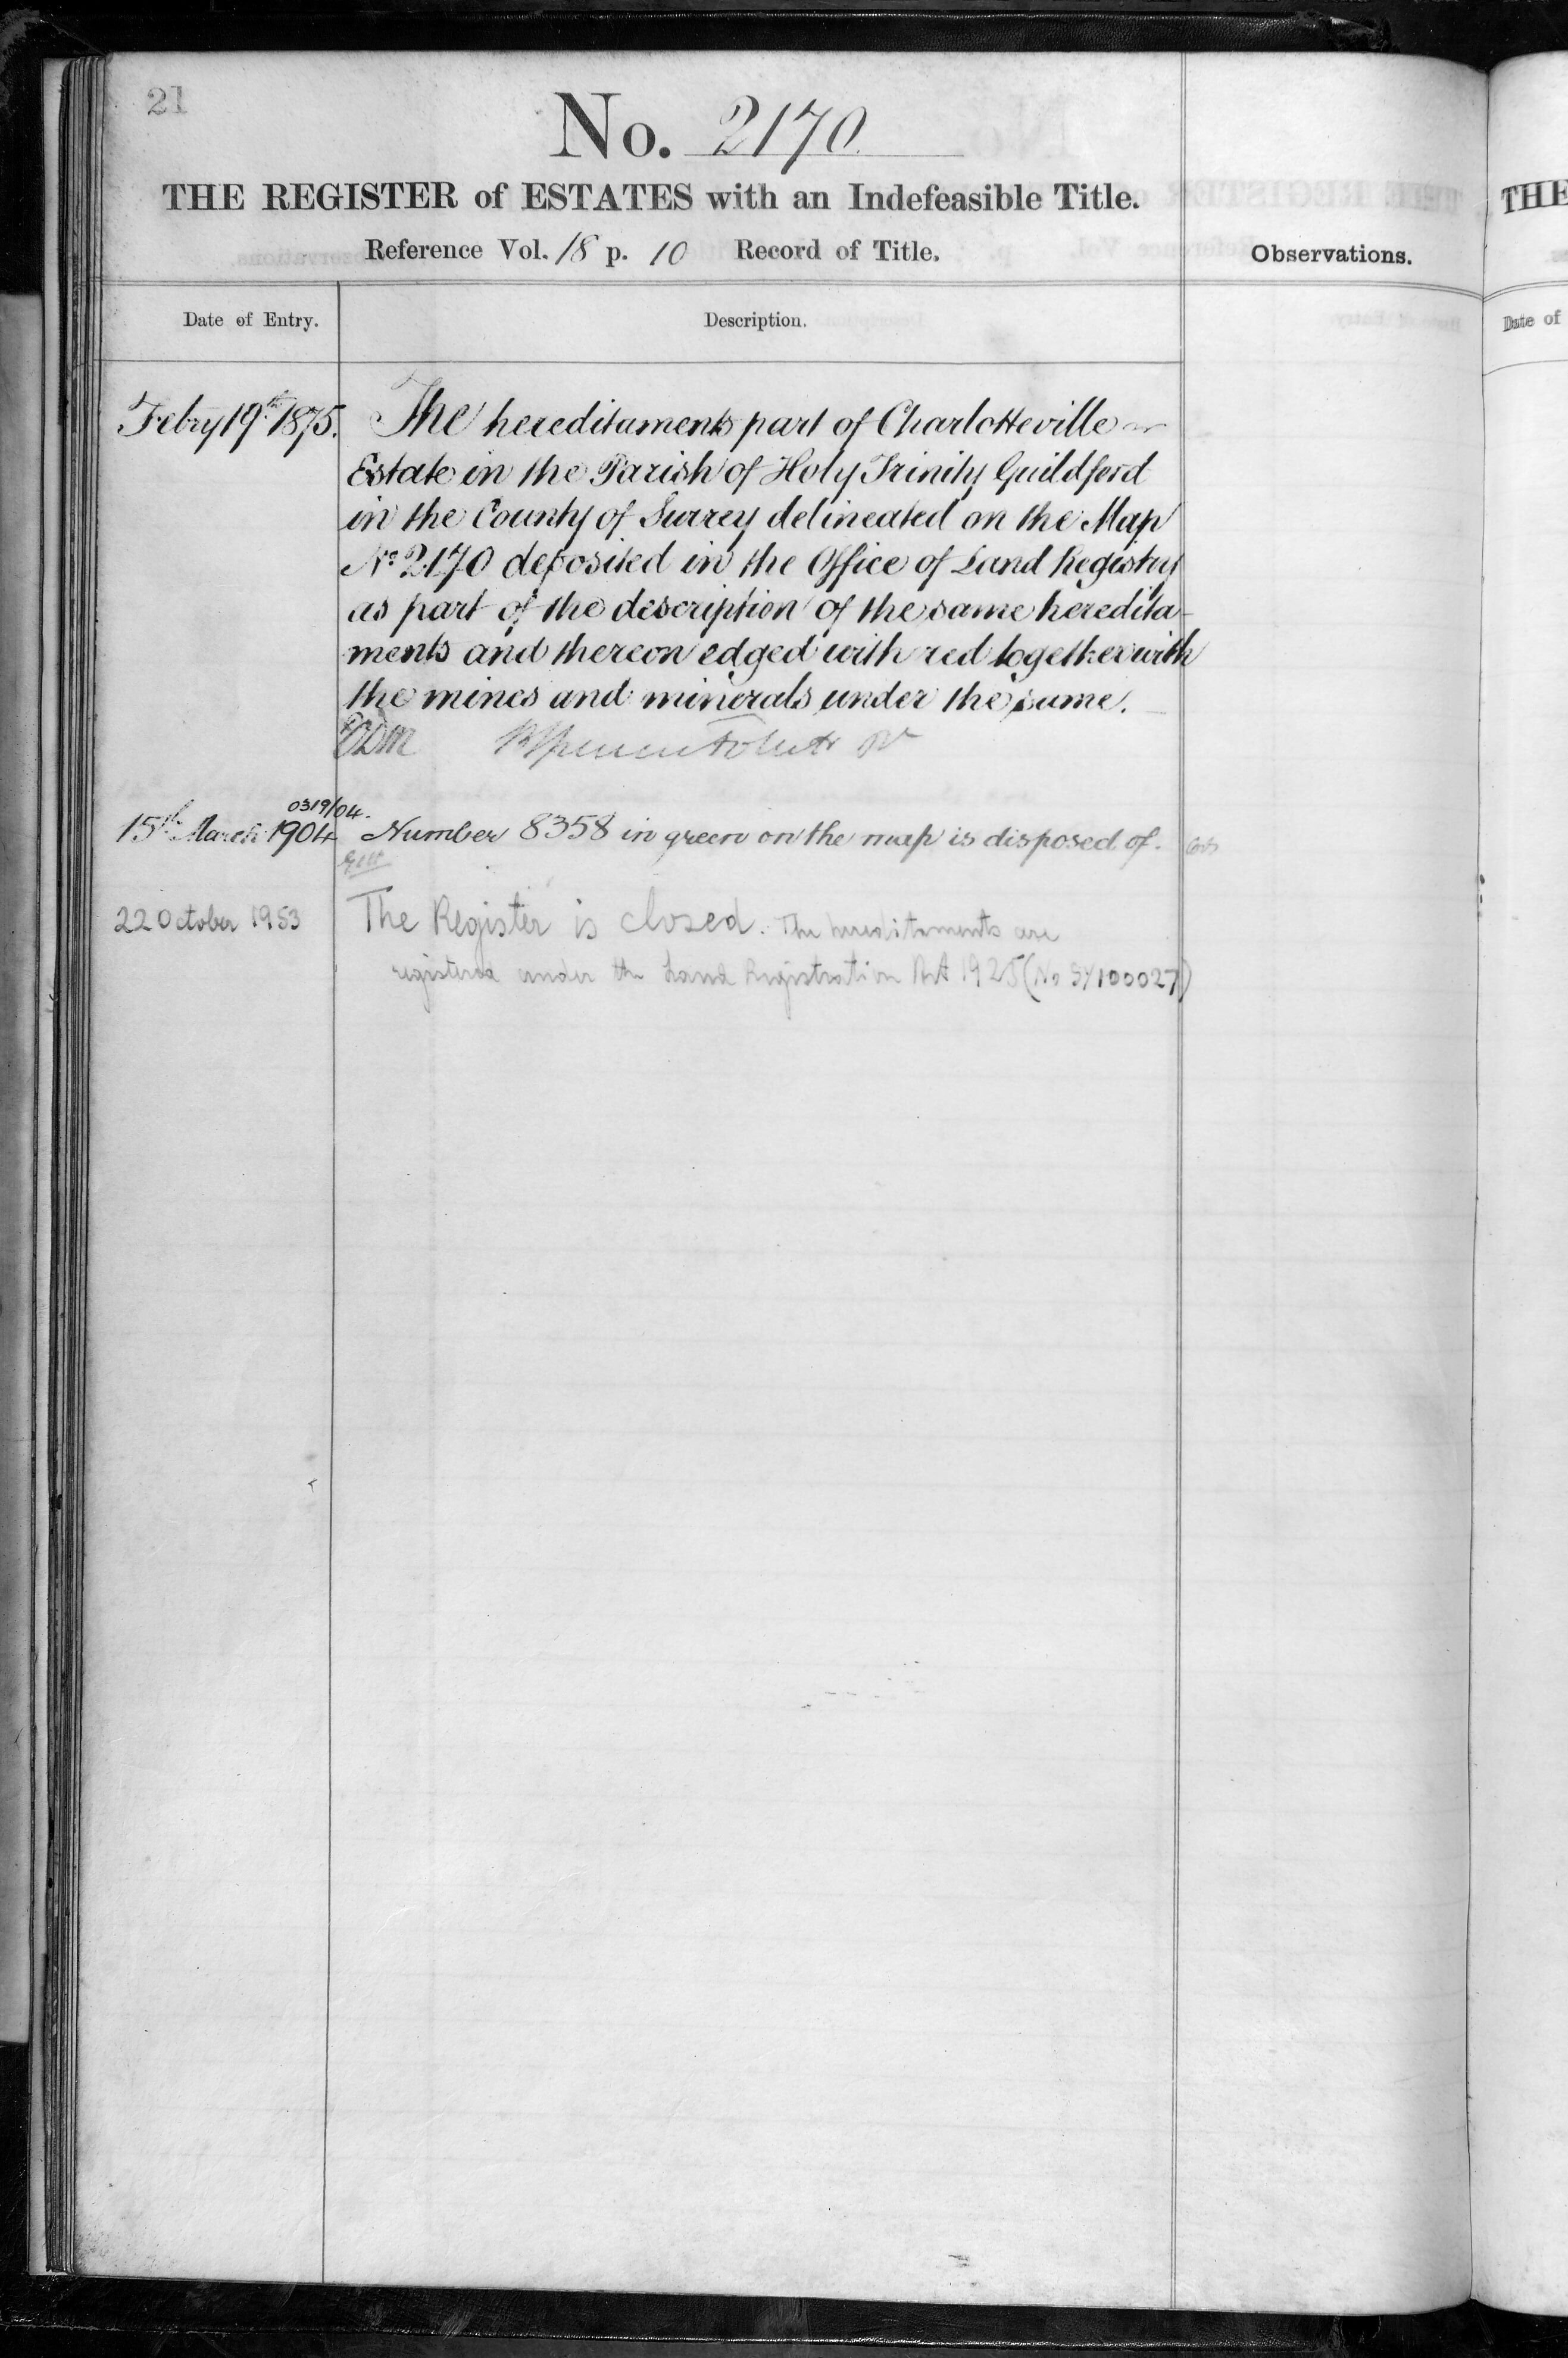 21
No. 2170
THE REGISTER of ESTATES with an Indefeasible Title.
Reference Vol. 18 p. 10 Record of Title.
Observations.
Date of Entry.
Description.
Febry 19th 1875. The hereditaments part of Charlotteville
Estate in the Parish of Holy Trinity Guildford
in the County of Surrey delineated on the Map
No 2170 deposited in the Office of Land Registry
as part of the description of the same heredita-
ments and thereon edged with red together with
the mines and minerals under the same.
0319/04.
15th March 1904 Number 8358 in green on the map is disposed of.
22 October 1953 The Register is closed. The hereditaments are
registered under the Land Registration Act 1925 (No SY100027)
THE
Date of